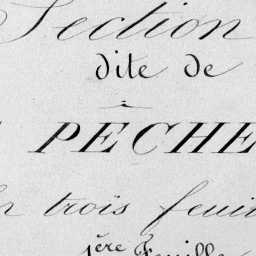 Section
dite de
PECHE
En trois feui
1ère Feuille